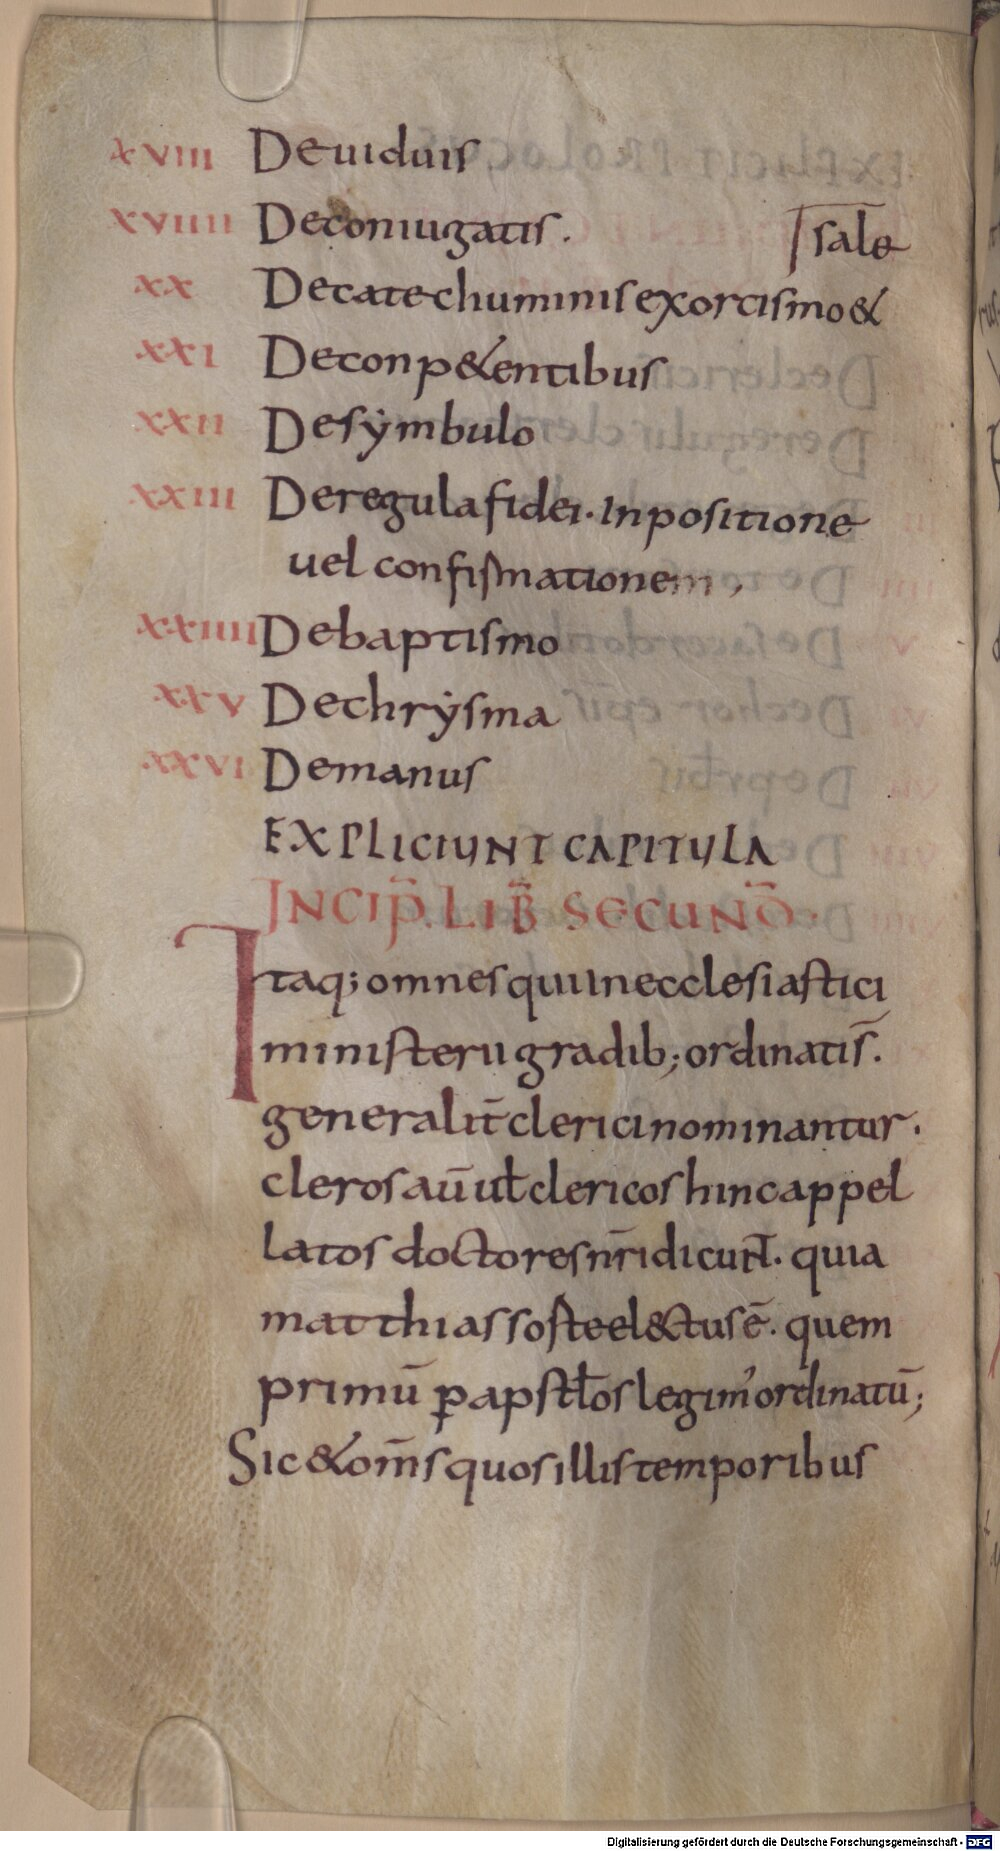 XVIII De uiduis
XVIIII De coniugatis.
sale
XX De catechuminis exorcismo &
XXI De conp&entibus
XXII De sẏmbulo
XXIII De regula fidei. Inpositione
uel confirmationem,
XXIIII De baptismo
XXV De chrẏsma
XXVI De manus
EXPLICIUNT CAPITULA
INCIP̄. LIB̄ SECUND̄O.
Itaq; omnes qui in ecclesiastici
ministerii gradib; ordinatis̄.
generalit̄ clerici nominantur.
cleros aū uƚ clericos hinc appel
latos doctores nr̄i dicun̄t. quia
matthias sorte el&ctus ē. quem
primū ꝑ apstƚos legim' ordinatū;
Sic & om̄s quos illis temporibus
Digitalisierung gefördert durch die Deutsche Forschungsgemeinschaft - DFG